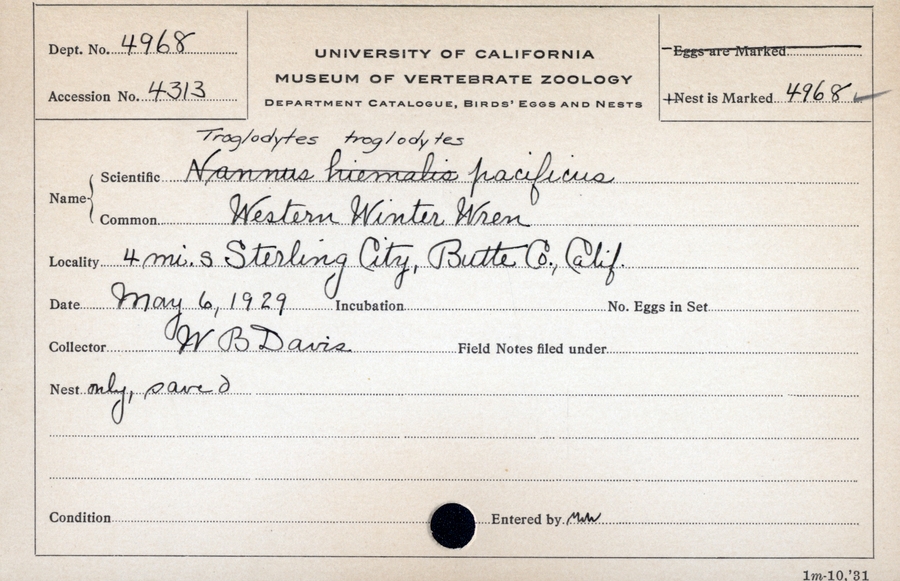 Dept. No. 4968
UNIVERSITY OF CALIFORNIA
MUSEUM OF VERTEBRATE ZOOLOGY
DEPARTMENT CATALOGUE, BIRDS' EGGS AND NESTS
Eggs are Marked
Accession No. 4313
Nest is Marked 4968
Troglodytes troglodytes
Name
Scientific Nannus hiemalis pacificus
Common Western Winter Wren
Locality 4 mi. S Sterling City, Butte Co., Calif.
Date May 6, 1929 Incubation No. Eggs in Set
Collector W B Davis Field Notes filed under
Nest only, saved
Condition Entered by
1m-10,'31